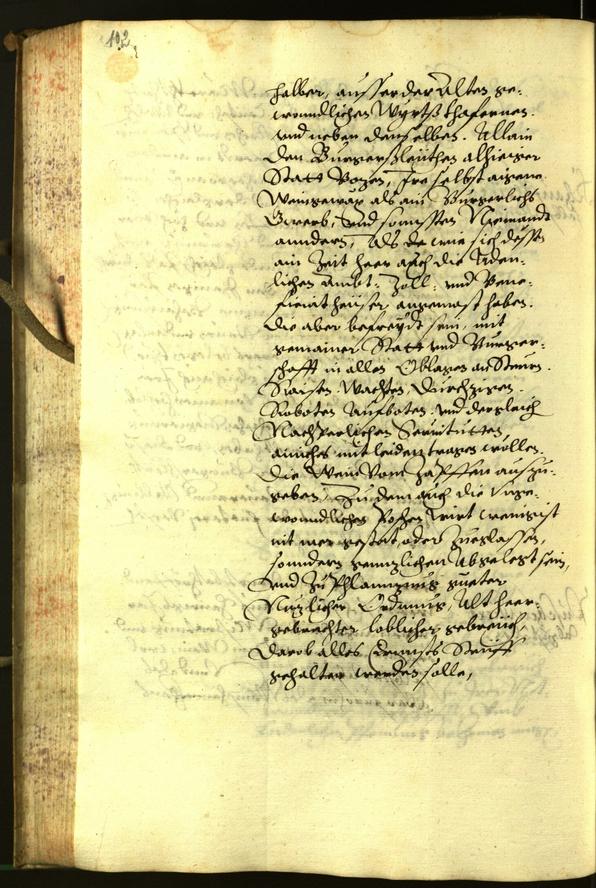 192
halber, ausser der Alten ge-
wonndlichen Wyrtsthafernen.
und neben denselben. Allain
den Burgersleüthen alhieiger
Statt Bozen, Ire selbst aigene
Weingewax als ain Burgerlichs
Gwerb, und sonnsten Niemands
annders, als da wie sich dessen
ain Zeit heer auch die Aden-
lichen Ambt: Zoll: und Bene-
ficiat heüser angemast haben.
die aber befreydt sein, mit
gemainer Statt und Burger-
schafft in allen Oblagen an Steurn
Raisen Wachten Durchzigen
Roboten Aufboten und dergleich
Nachperlichen Servituten
ainiches mitleiden tragen wellen.
die Wein vom Zapffen auszu-
geben, Zudem auch die Unge-
wonndlichen wirt
nit mer gestat oder Zuegelassen,
sonndern genntzlichen Abgelegt sein,
und Zu Phlannzung gueter
Nuzlicher Ordnung, Alt heer-
gebrachten loblichen gebreüch
darob alles Ernnsts Steiff
gehalten werden solle,